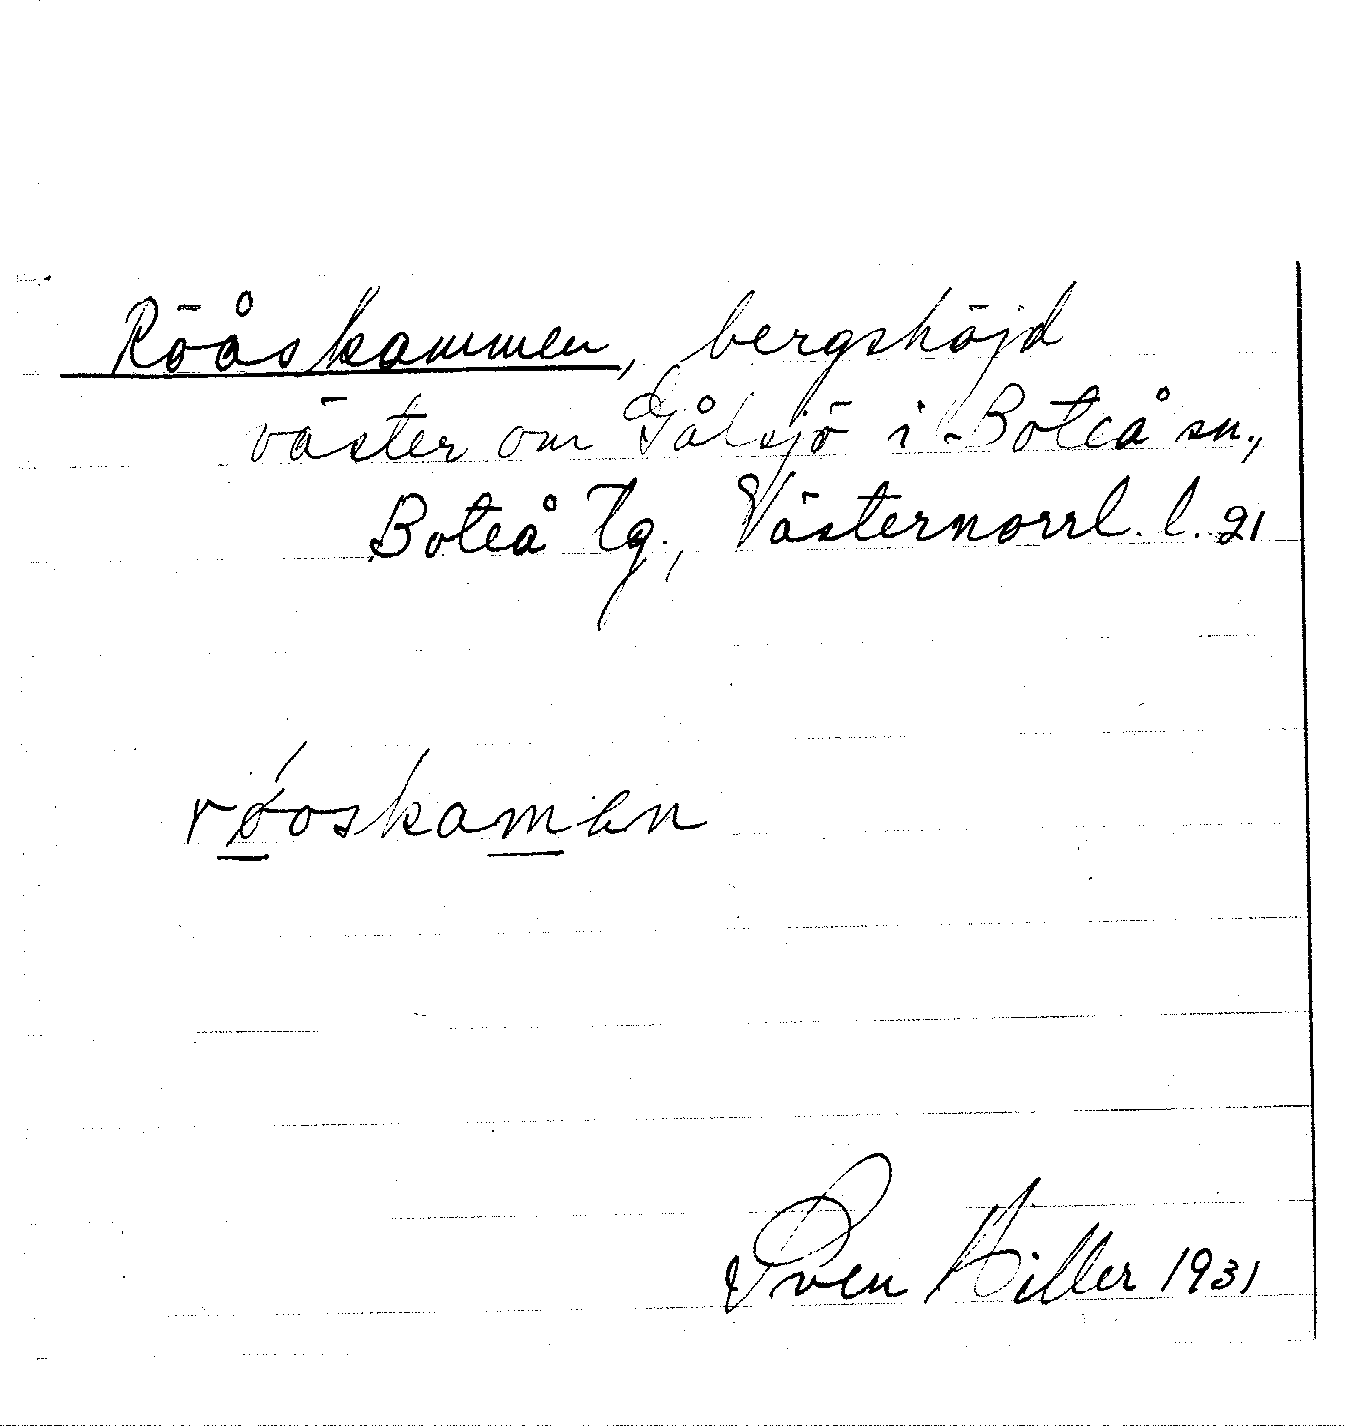 Rööåskammen, bergshöjd
väster om Gålsjö i Boteå sn.,
Boteå Tg., Västernorrl. l. 21
røoskamen
Sven Hiller 1931